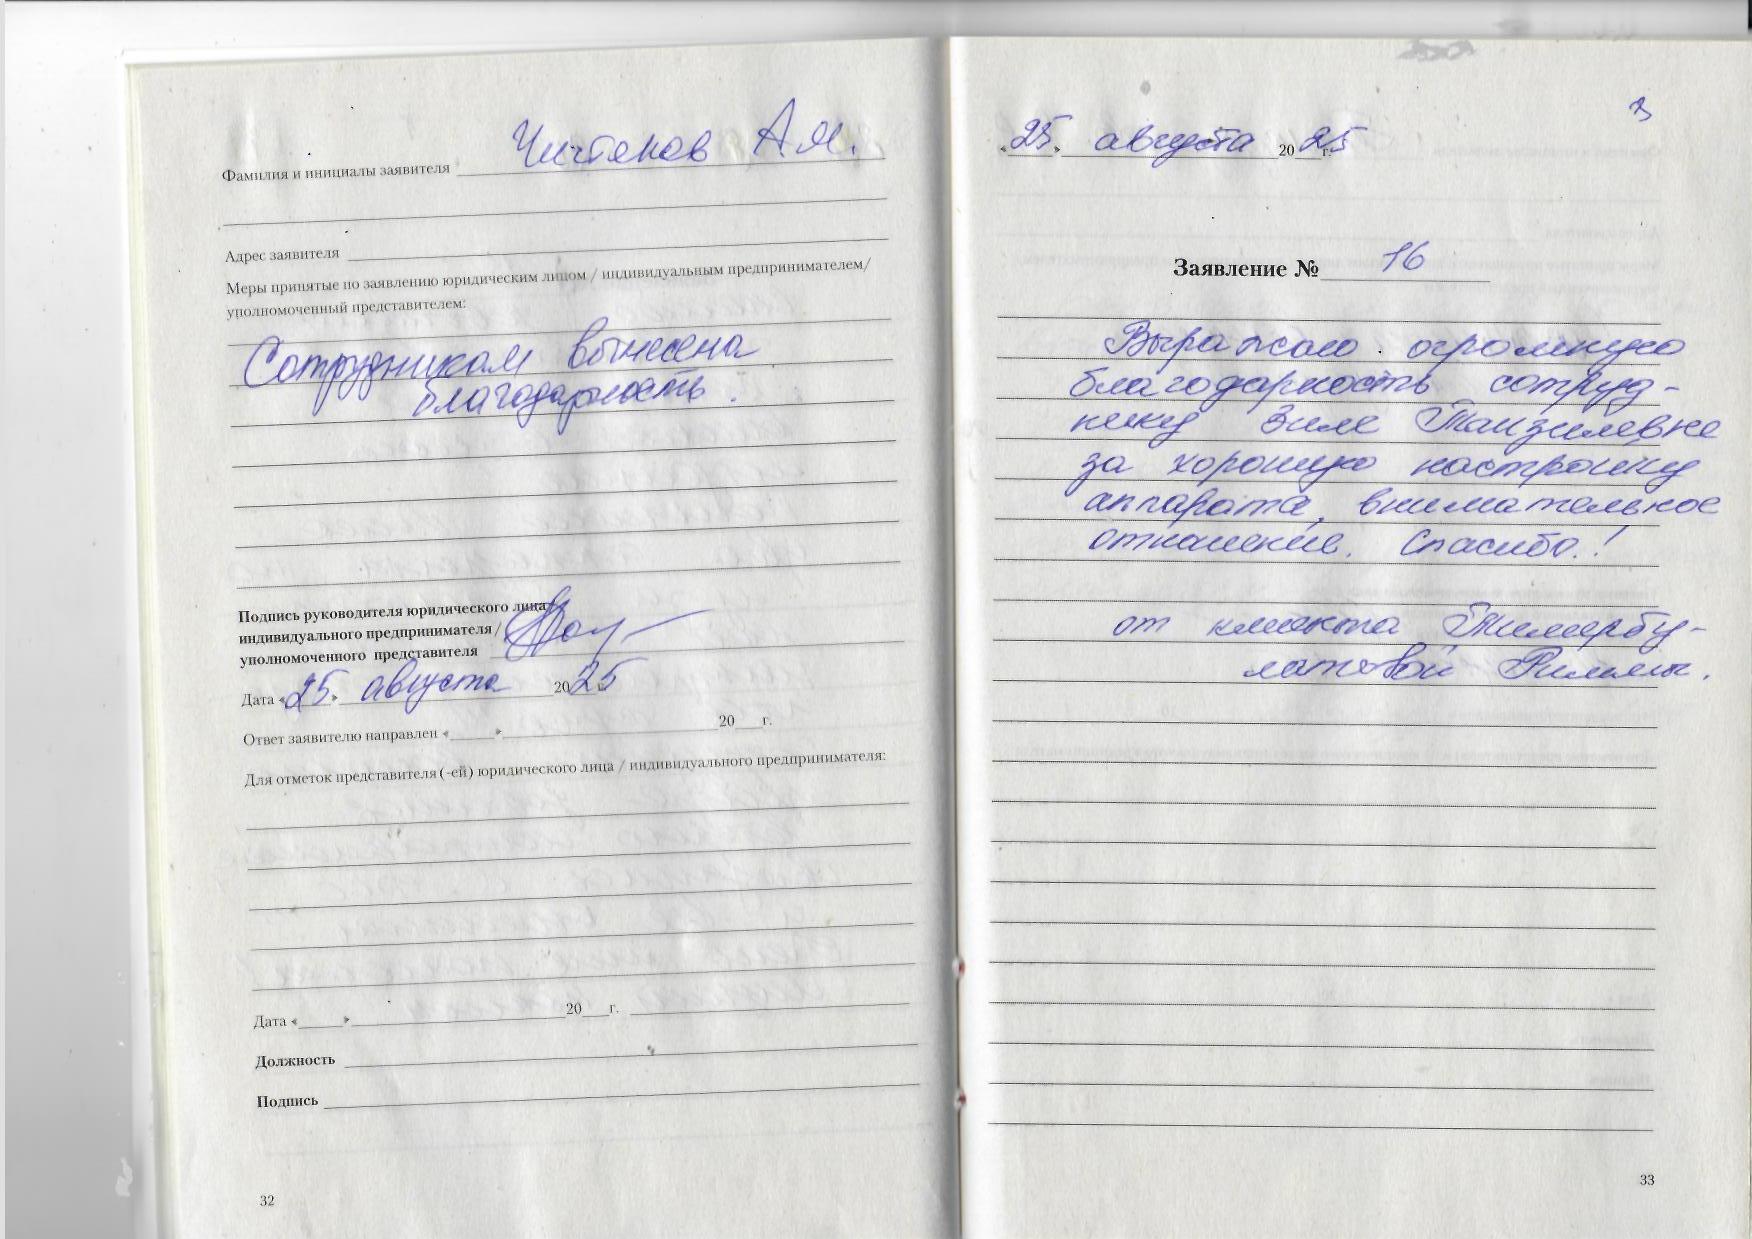 Фамилия и инициалы заявителя Чистяков А.М.
Адрес заявителя
Меры принятые по заявлению юридическим лицом / индивидуальным предпринимателем/
уполномоченный представителем:
Сотрудникам вынесена
благодарность.
Подпись руководителя юридического лица/
индивидуального предпринимателя/
уполномоченного представителя
Дата «25» августа 2025
Ответ заявителю направлен «  »  20  г.
Для отметок представителя (-ей) юридического лица / индивидуального предпринимателя:
Дата «  »  20  г.
Должность
Подпись
32
«25» августа 2025 г.
Заявление № 16
Выражаю огромную
благодарность сотруд-
нику Зиле Танзилевне
за хорошую настройку
аппарата, внимательное
отношение. Спасибо!
от клиента Тимербу-
латовой Риммы.
33